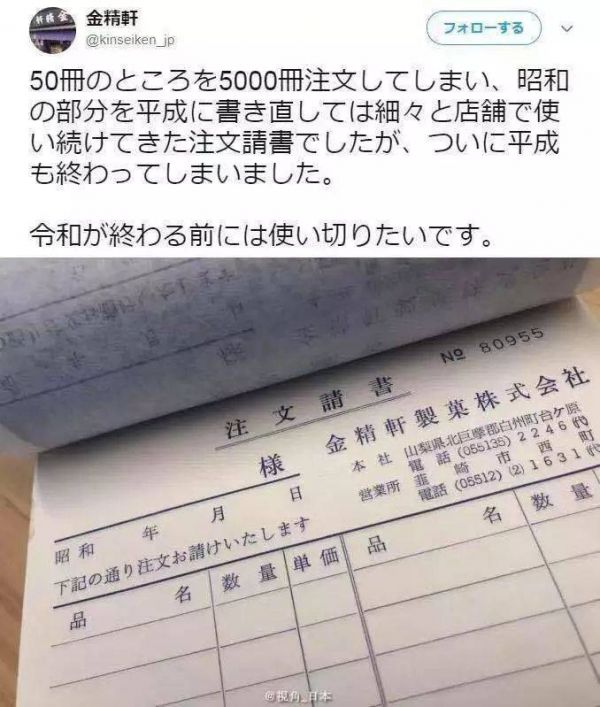 金精軒
@kinseiken_jp
フォローする
50冊のところを5000冊注文してしまい、昭和
の部分を平成に書き直しては細々と店舗で使
い続けてきた注文請書でしたが、ついに平成
も終わってしまいました。
令和が終わる前には使い切りたいです。
№ 80955
注文請書
様
金精軒製菓株式会社
本社 山梨県北巨摩郡白州町台ケ原
電話(055135)2246(代)
営業所 韮崎市西町
電話(05512)(2)1631(代)
昭和 年 月 日
下記の通り注文お請けいたします
品名 数量 単価 品名 数量
@视角_日本